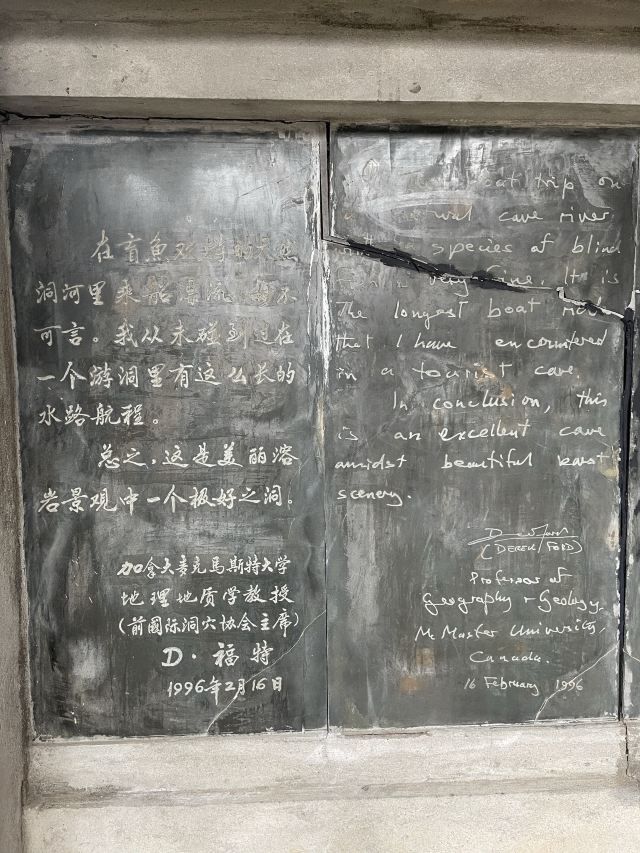 在盲魚
洞河里乘船漂流，妙不
可言。我从未碰到过在
一个游洞里有这么长的
水路航程。
总之，这是美丽溶
岩景观中一个极好之洞。
加拿大麦克马斯特大学
地理地质学教授
（前國际洞穴协会主席）
D·福特
1996年2月16日
boat trip on
cave river
species of blind
fish is very fine. It is
The longest boat ride
that I have encountered
in a tourist cave.
In conclusion, this
is an excellent cave
amidst beautiful karst
scenery.
(DEREK FORD)
Professor of
Geography + Geology,
McMaster University,
Canada.
16 February 1996